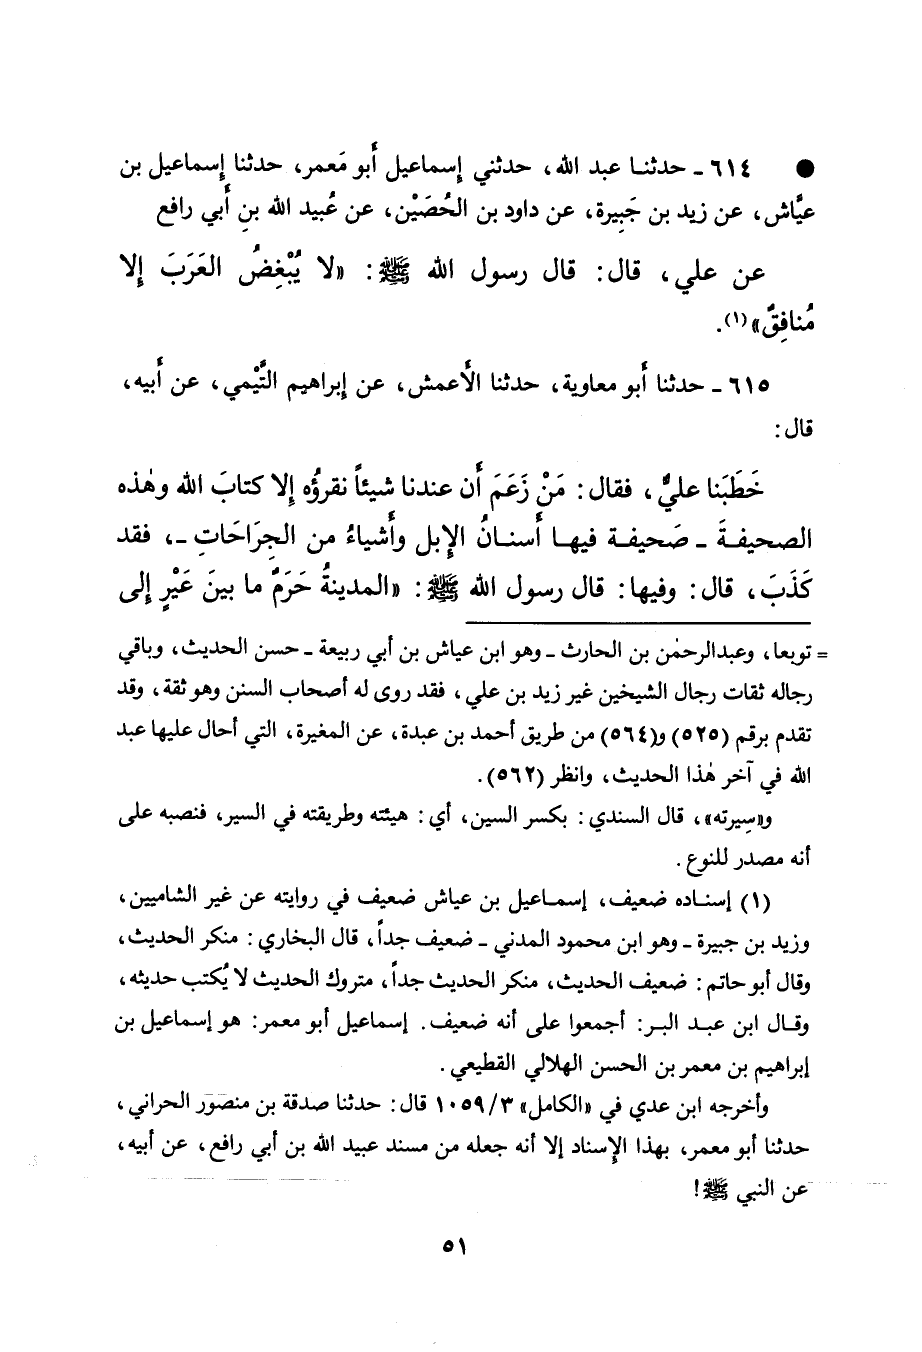 ● ٦١٤ ـ حدثنا عبد الله، حدثني إسماعيل أَبو مَعمر، حدثنا إسماعيل بن
عيَّاش، عن زيد بن جَبِيرة، عن داود بن الحُصَيْن، عن عُبيد الله بنِ أَبي رافع
عن علي، قال: قال رسول الله ﷺ: «لا يُبْغِضُ العَرَبَ إِلا
مُنافِقٌ»(١).
٦١٥ ـ حدثنا أَبو معاوية، حدثنا الأَعمش، عن إبراهيم التَّيْمي، عن أَبيه،
قال:
خَطَبَنا عليٌّ، فقال: مَنْ زَعَمَ أَن عندنا شيئاً نقرؤُه إِلا كتابَ الله وهٰذه
الصحيفةَ ـ صَحيفة فيها أَسنانُ الإِبل وأَشياءُ من الجِرَاحَاتِ ـ، فقد
كَذَبَ، قال: وفيها: قال رسول الله ﷺ: «المدينةُ حَرَمٌ ما بينَ عَيْرٍ إِلى
= توبعا، وعبدالرحمٰن بن الحارث ـ وهو ابن عياش بن أبي ربيعة ـ حسن الحديث، وباقي
رجاله ثقات رجال الشيخين غير زيد بن علي، فقد روى له أصحاب السنن وهو ثقة، وقد
تقدم برقم (٥٢٥) و(٥٦٤) من طريق أحمد بن عبدة، عن المغيرة، التي أحال عليها عبد
الله في آخر هٰذا الحديث، وانظر (٥٦٢).
و«سِيرته»، قال السندي: بكسر السين، أي: هيئته وطريقته في السير، فنصبه على
أنه مصدر للنوع.
(١) إسناده ضعيف، إسماعيل بن عياش ضعيف في روايته عن غير الشاميين،
وزيد بن جبيرة ـ وهو ابن محمود المدني ـ ضعيف جداً، قال البخاري: منكر الحديث،
وقال أبو حاتم: ضعيف الحديث، منكر الحديث جداً، متروك الحديث لا يُكتب حديثه،
وقال ابن عبد البر: أجمعوا على أنه ضعيف. إسماعيل أبو معمر: هو إسماعيل بن
إبراهيم بن معمر بن الحسن الهلالي القطيعي.
وأخرجه ابن عدي في «الكامل» ١٠٥٩/٣ قال: حدثنا صدقة بن منصور الحراني،
حدثنا أبو معمر، بهذا الإِسناد إلا أنه جعله من مسند عبيد الله بن أبي رافع، عن أبيه،
عن النبي ﷺ!
٥١